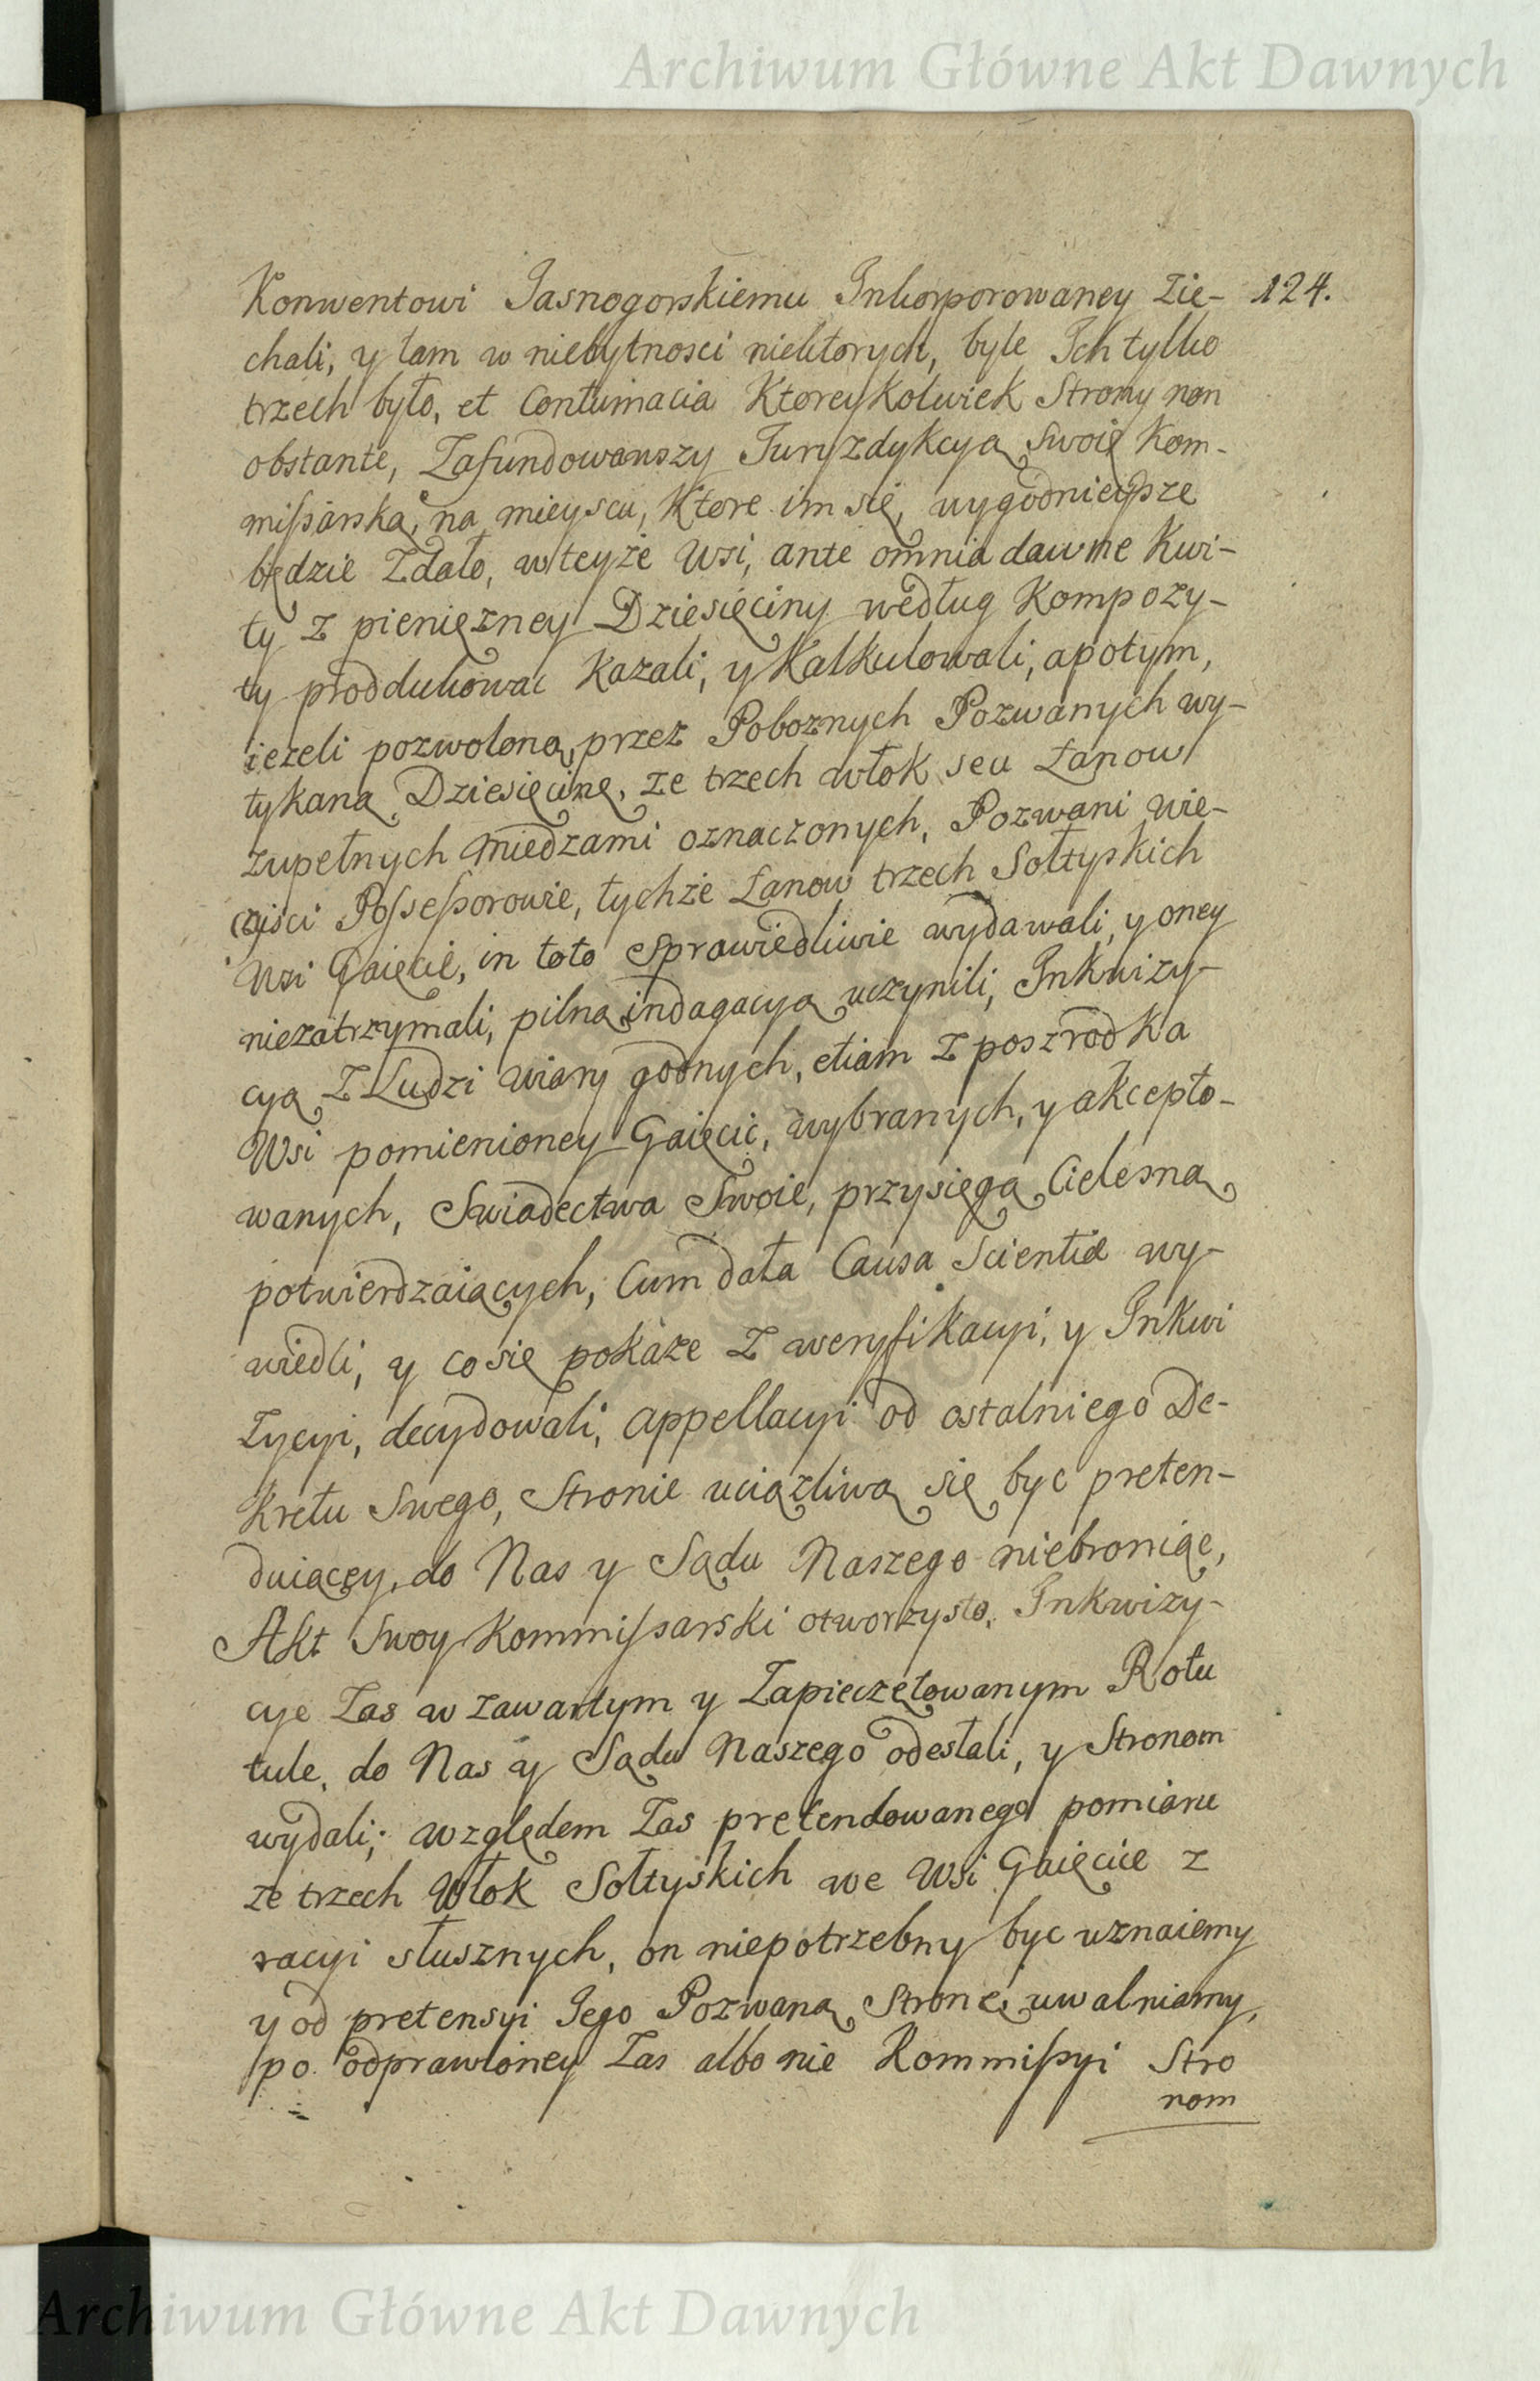 Archiwum Główne Akt Dawnych
124.
Konwentowi Jasnogorskiemu Inkorporowaney Zie-
chali, y tam w niebytnosci niektorych, byle Ich tylko
trzech było, et Contumacia Ktoreykolwiek Strony non
obstante, Zafundowawszy Juryzdykcyą Swoię Kom-
missarską, na mieyscu, Ktore im się wygodnieysze
będzie Zdało, w teyże Wsi, ante omnia dawne Kwi-
ty z pienięzney Dziesięciny według Kompozy-
ty prodduhowac Kazali, y Kalkulowali, apotym,
iezeli pozwoloną przez Poboznych Pozwanych wy-
tykaną Dziesięcinę, ze trzech włok seu Łanow
zupełnych miedzami oznaczonych, Pozwani wie-
czyści Possessorowie, tychże Łanow trzech Sołtyskich
Wsi Gaięcic, in toto Sprawiedliwie wydawali, y oney
niezatrzymali, pilną indagacyą uczynili, Inkwizy-
cyą Z Ludzi wiary godnych, etiam z poszrodka
Wsi pomienioney Gaięcic, wybranych, y akcepto-
wanych, Swiadectwa Swoie, przysięgą Cielesną
potwierdzaiących, Cum data Causa Scientiæ wy-
wiedli, y co się pokaże Z weryfikacyi, y Inkwi
Zycyi, decydowali, appellacyi od ostatniego De-
kretu Swego, Stronie uciązliwą się byc preten-
duiącey, do Nas y Sądu Naszego niebroniąc,
Akt Swoy Kommissarski otworzysto, Inkwizy-
cye Zas w zawartym y Zapieczętowanym Rotu
tule, do Nas y Sądu Naszego odesłali, y Stronom
wydali; względem Zas pretendowanego pomiaru
ze trzech Włok Sołtyskich we Wsi Gaięcice z
racyi słusznych, on niepotrzebny byc uznaiemy
y od pretensyi Jego Pozwaną Stronę uwalniamy,
po odprawioney Zas albo nie Kommissyi Stro
nom
Archiwum Główne Akt Dawnych